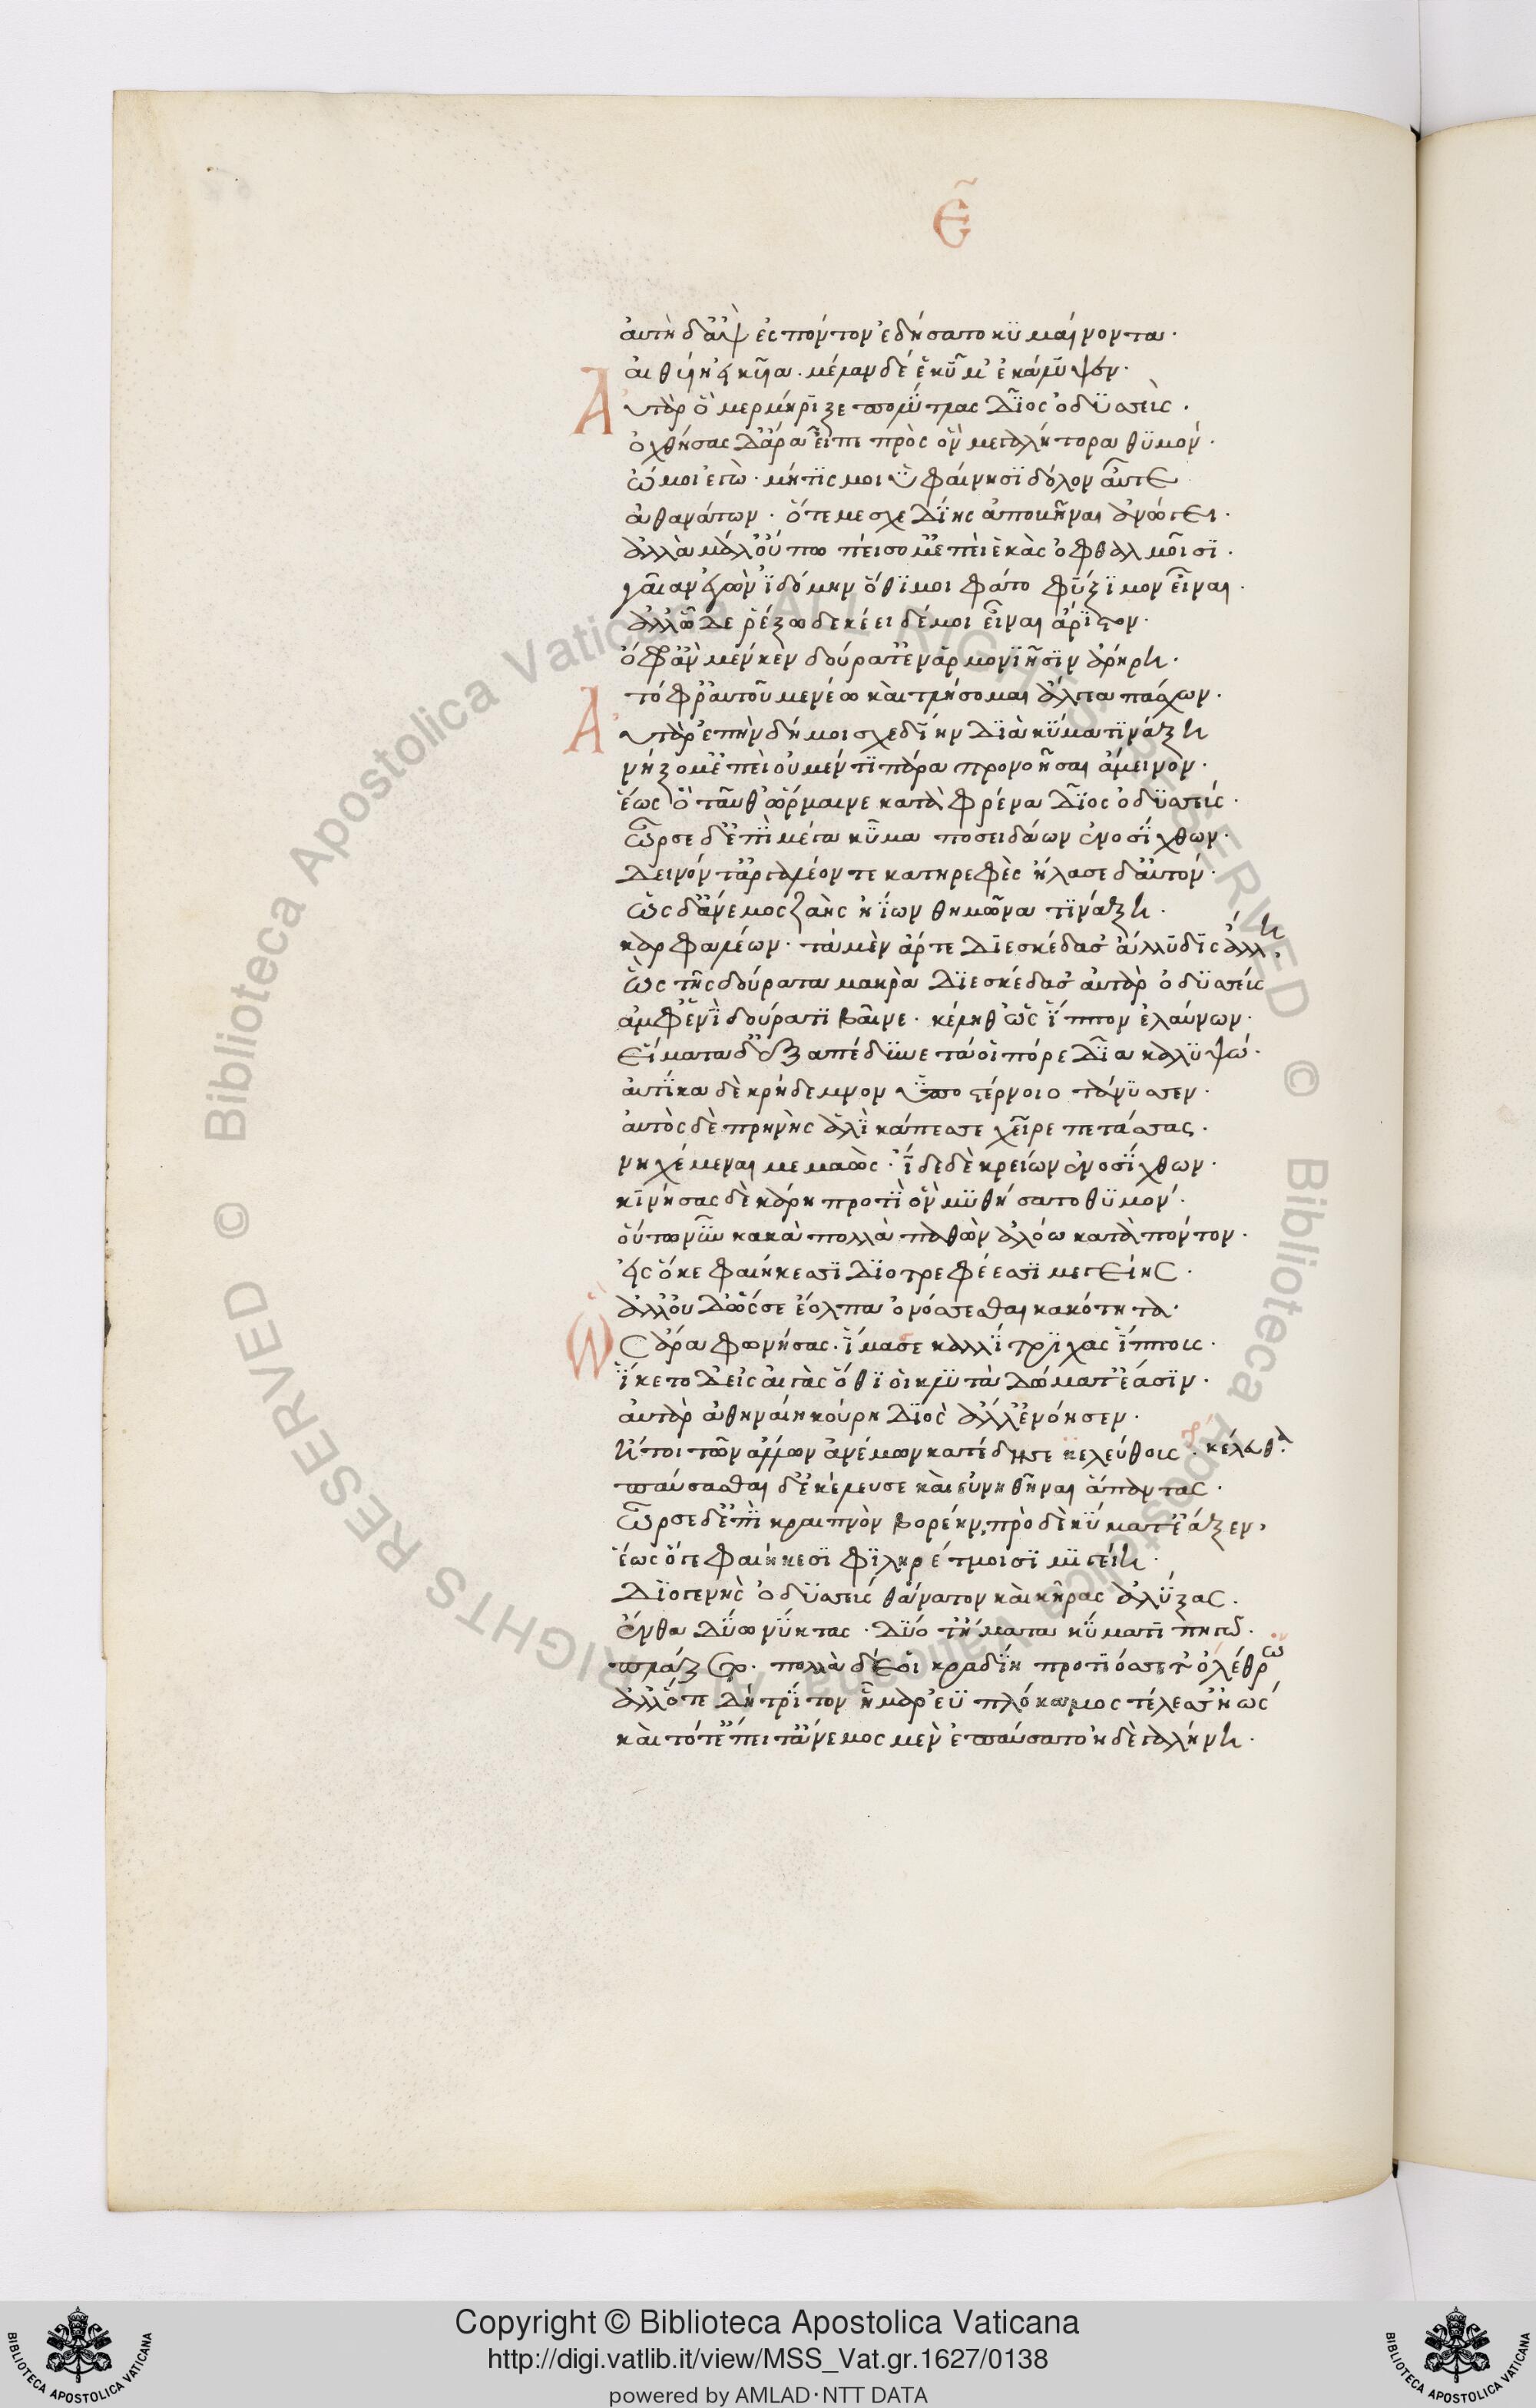 Ε
αυτὴ δ' ἂψ ἐς πόντον ἐδήσατο κυμαίνοντα·
αἰθυίη ἐϊκυῖα· μέλαν δέ ἑ κῦμ' ἐκάλυψεν·
Αὐτὰρ ὃ μερμήριζε πολύτλας δῖος ὀδυσσεύς·
ὀχθήσας δ' ἄρα εἶπε πρὸς ὃν μεγαλήτορα θυμόν·
ὤ μοι ἐγώ· μήτις μοι ὑφαίνησι δόλον αὖτε
ἀθανάτων· ὅτε με σχεδίης ἀποβῆναι ἀνώγει·
ἀλλὰ μάλ' οὔπω πείσομ' ἐπεὶ ἑκὰς ὀφθαλμοῖσι·
γαῖαν ἐγὼν ἰδόμην ὅθι μοι φάτο φύξιμον εἶναι·
ἀλλ' ὧδε ῥέξω δοκέει δέ μοι εἶναι ἄριστον·
ὄφρ' ἂν μέν κεν δούρατ' ἐν ἁρμονίῃσιν ἀρήρῃ·
τόφρ' αὐτοῦ μενέω καὶ τλήσομαι ἄλγεα πάσχων·
Αὐτὰρ ἐπὴν δή μοι σχεδίην διὰ κῦμα τινάξῃ
νήξομ' ἐπεὶ οὐ μέν τι πάρα προνοῆσαι ἄμεινον·
ἕως ὃ ταῦθ' ὥρμαινε κατὰ φρένα δῖος ὀδυσσεύς·
ὦρσε δ' ἐπὶ μέγα κῦμα ποσειδάων ἐνοσίχθων·
δεινόν τ' ἀργαλέον τε κατηρεφὲς ἤλασε δ' αὐτόν·
ὡς δ' ἄνεμος ζαὴς ἠΐων θημῶνα τινάξῃ·
καρφαλέων· τὰ μὲν ἄρ τε διεσκέδασ' ἄλλυδις ἄλλῃ,
ὣς τῆς δούρατα μακρὰ διεσκέδασ' αὐτὰρ ὀδυσσεύς
ἀμφ' ἑνὶ δούρατι βαῖνε· κέληθ' ὡς ἵππον ἐλαύνων·
εἵματα δ' ἐξαπέδυνε τά οἱ πόρε δῖα καλυψώ·
αὐτίκα δὲ κρήδεμνον ὑπο στέρνοιο τάνυσσεν·
αὐτὸς δὲ πρηνὴς ἁλὶ κάππεσε χεῖρε πετάσσας·
νηχέμεναι μεμαώς· ἴδε δὲ κρείων ἐνοσίχθων·
κινήσας δὲ κάρη προτὶ ὃν μυθήσατο θυμόν·
οὕτω νῦν κακὰ πολλὰ παθὼν ἀλόω κατὰ πόντον·
εἰς ὅ κε φαιήκεσσι διοτρεφέεσσι μιγείης·
ἀλλ' οὐδ' ὥς σε ἔολπα ὀνόσσεσθαι κακότητα·
Ὣς ἄρα φωνήσας· ἵμασε καλλίτριχας ἵππους·
ἵκετο δ' εἰς αἰγὰς ὅθι οἱ κλυτὰ δώματ' ἔασιν·
αὐτὰρ ἀθηναίη κούρη διὸς ἄλλ' ἐνόησεν·
ἤτοι τῶν ἄλλων ἀνέμων κατέδησε κελεύθους· γρ κέλευθα
παύσασθαι δ' ἐκέλευσε καὶ εὐνηθῆναι ἅπαντας·
ὦρσε δ' ἐπὶ κραιπνὸν βορέην, πρὸ δὲ κύματ' ἔαξεν,
ἕως ὅτε φαιήκεσι φιληρέτμοισι μιγείη·
διογενὴς ὀδυσσεύς θάνατον καὶ κῆρας ἀλύξας·
ἔνθα δύω νύκτας· δύο τ' ἤματα κύματι πηγῶ·
πλάζετο· πολλὰ δέ οἱ κραδίη προτιόσσετ' ὀλέθρω
ἀλλ' ὅτε δὴ τρίτον ἦμαρ ἐϋπλόκαμος τέλεσ' ἠώς
καὶ τότ' ἔπειτ' ἄνεμος μὲν ἐπαύσατο ἡ δὲ γαλήνη·
Copyright © Biblioteca Apostolica Vaticana
http://digi.vatlib.it/view/MSS_Vat.gr.1627/0138
powered by AMLAD·NTT DATA